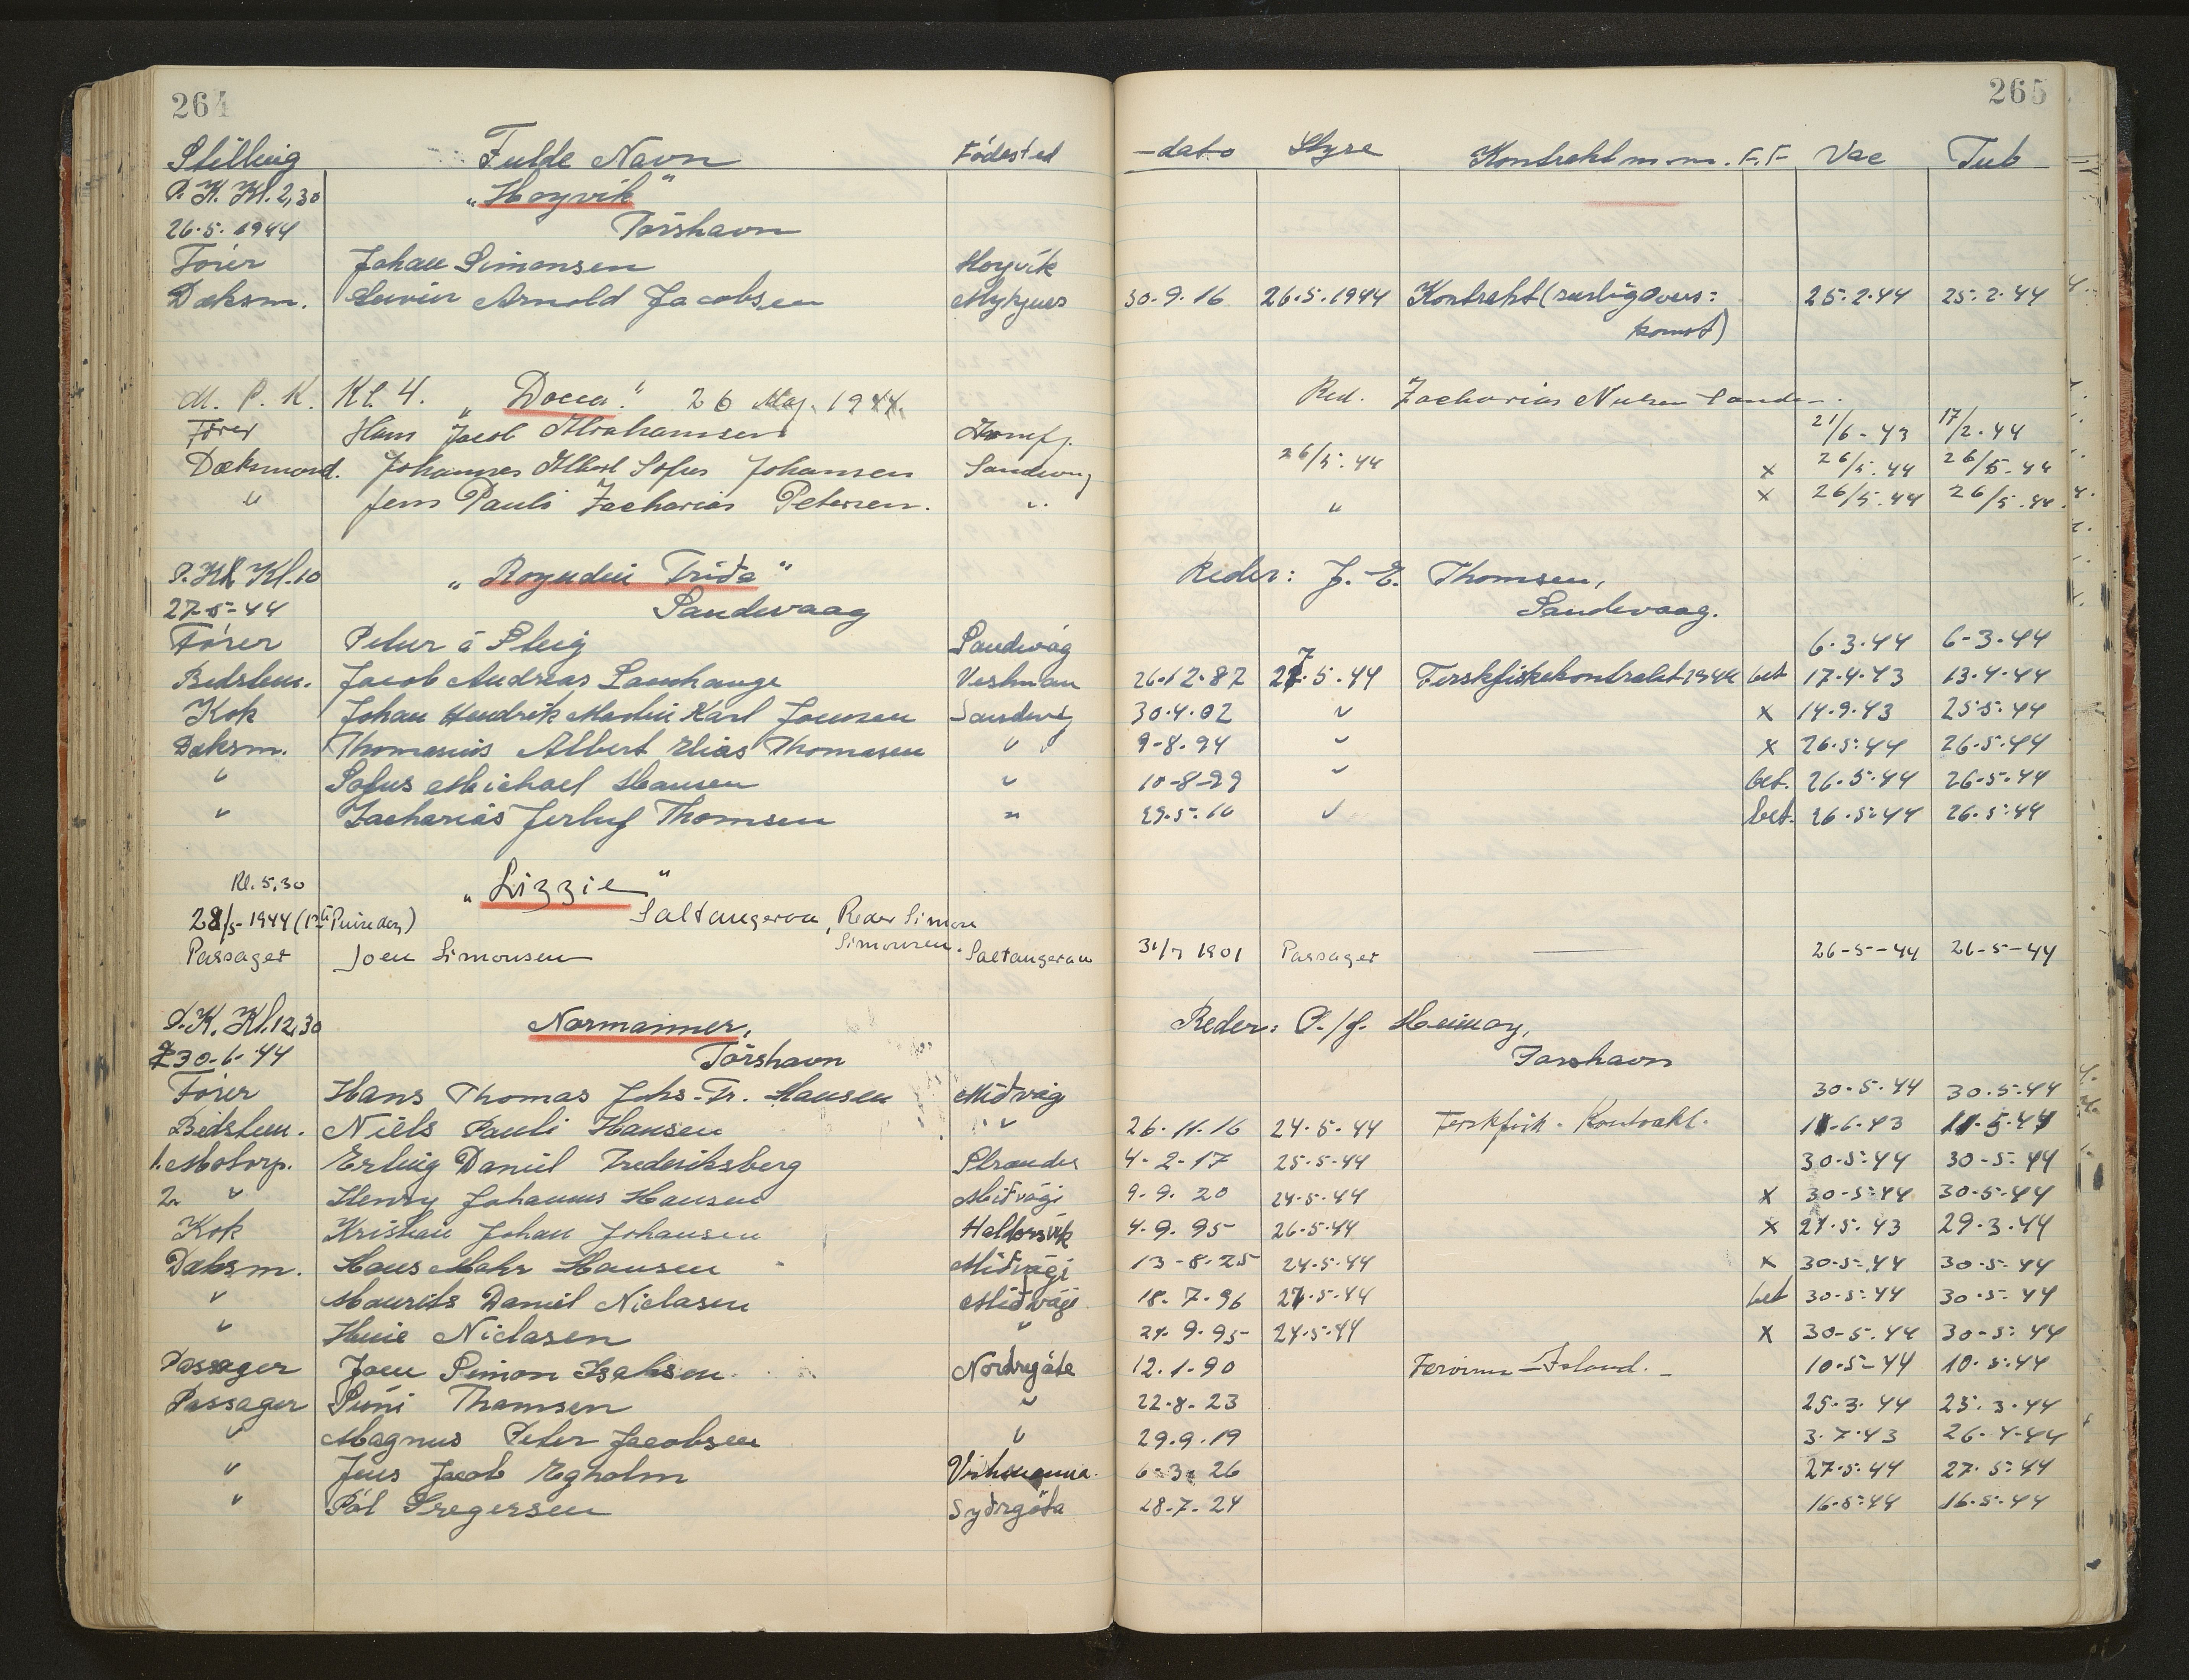 264 265
Stilling Fulde Navn Födested -dato Hyre Kontrakt m.m. F.F Vac Tub
P. K. Kl. 2,30 "Hoyvik"
26.5.1944 Tórshavn
Förer Johan Simonsen Hoyvik
Dæksm. Arnold Jacobsen Mykjnes 30.9.16 26.5.1944 Kontrakt (særlig Overs: 25.2.44 25.2.44
komst)
M. P. K. Kl. 4. " " 26 Maj. 1944. Red. Zacharias
Förer Hans Jacob Abrahamsen 21/6-43 17/2-44
Dæksmand. Johannes Albert Sofus Johansen Sandvog 26/5.44 x 26/5.44 26/5.44
" Jens Pauli Zacharias Petersen. " " x 26/5.44 26/5.44.
P.K. Kl.10 "Royndin Trida" Reder: J. E. Thomsen,
27-5-44 Sandevaag Sandevaag.
Förer Petur á Steig Sandevág 6.3.44 6-3.44
Bedstem. Jacob Andreas Vestman 26.12.87 27.5.44 Ferskfiskekontrakt 1944 bet 17.4.43 13.4.44
Kok Johan Hendrik Martin Karl Joensen Sandevág 30.4.02 " x 14.9.43 25.5.44
Dæksm. Thomasius Albert Elias Thomasen " 9-8.94 " x 26.5.44 26.5.44
" Sofus Michael Hansen " 10-8-99 " bet. 26.5.44 26-5.44
" Zacharias Thomsen " 29.5.10 " bet. 26.5.44 26.5.44
Kl. 5,30 "Lizzie"
28/5-1944 (12te Pinsedag) Saltangeraa, Reder Simon
Simonsen.
Passager Joen Simonsen Saltangeraa 31/7 1901 Passager — 26-5-44 26-5-44
P.K. Kl.12,30 Normanner. Reder: P./f. Heimoy,
30-6-44 Tórshavn Torshavn
Förer Hans Thomas Johs-Fr. Hansen Miðvág 30.5.44 30.5.44
Bedstem. Niels Pauli Hansen " 26.11.16 24.5.44 Ferskfisk. Kontrakt. 11.6.43 11.5.44
1. Motorp. Erling Daniel Frederiksberg Strandes 4-2-17 25.5.44 30.5.44 30-5-44
2. " Henry Johannus Hansen Miðvági 9.9.20 24.5.44 x 30-5.44 30-5-44
Kok Kristian Johan Johansen Haldorsvik 4.9.95 26.5.44 x 27.5.43 29.3.44
Dæksm. Hans Mohr Hansen Miðvági 13-8.25 24.5.44 x 30.5.44 30.5.44
" Maurits Daniel Niclasen Miðvági 18.7.96 27.5.44 bet 30.5.44 30.5.44
" Niclasen " 27.9.95 24.5.44 x 30-5.44 30-5.44
Passager Joen Simon Isaksen Nordragöta 12.1.90 Færoerne - Island. 10.5-44 10.5.44
Passager Súni Thomsen " 22.8.23 25.3.44 25.3.44
" Magnus Peter Jacobsen " 29.9.19 3.7.43 26-4-44
" Jens Jacob Egholm Vestmanna. 6-3-26 27.5.44 27.5.44
" Pól Gregersen Syðrgöta 28.7.24 16.5.44 16.5.44